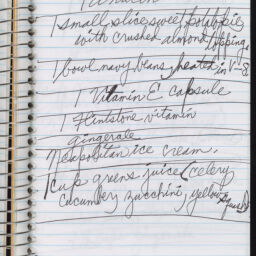 1 small slice sweet potato pie
with crushed almond topping.
1 bowl navy beans, heated in V-8
1 Vitamin E capsule
1 Flintstone vitamin
gingerale
Neapolitan ice cream.
1 cup greens juice (celery
cucumber, zucchini, yellow squash)